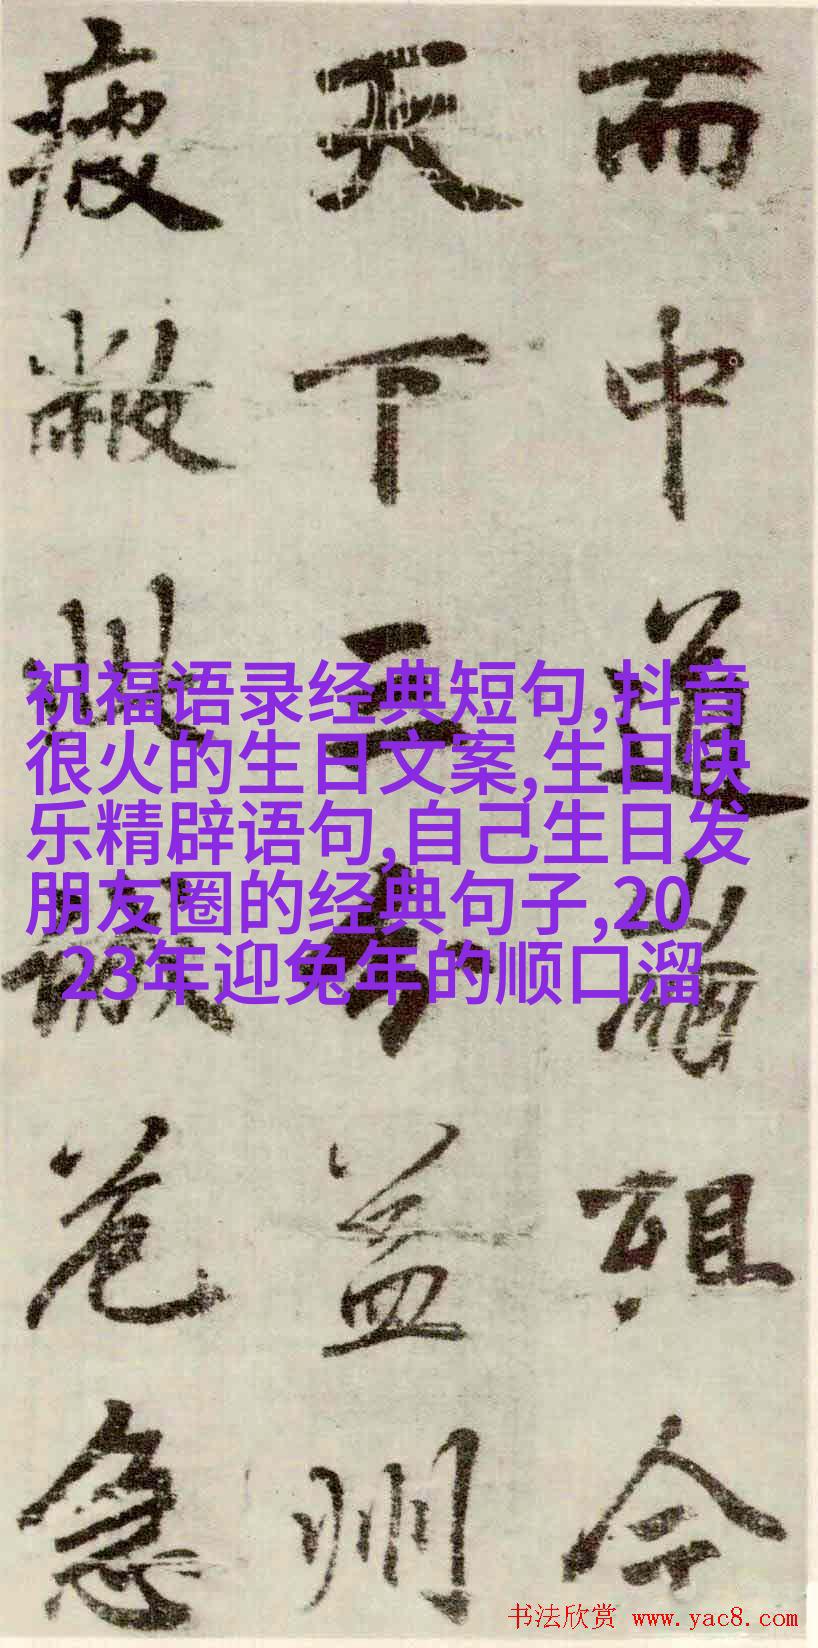 而中道崩殂今
天下三分益州
疲敝此誠危急
祝福语录经典短句,抖音
很火的生日文案,生日快
乐精辟语句,自己生日发
朋友圈的经典句子,20
23年迎兔年的顺口溜
书法欣赏 www.yac8.com